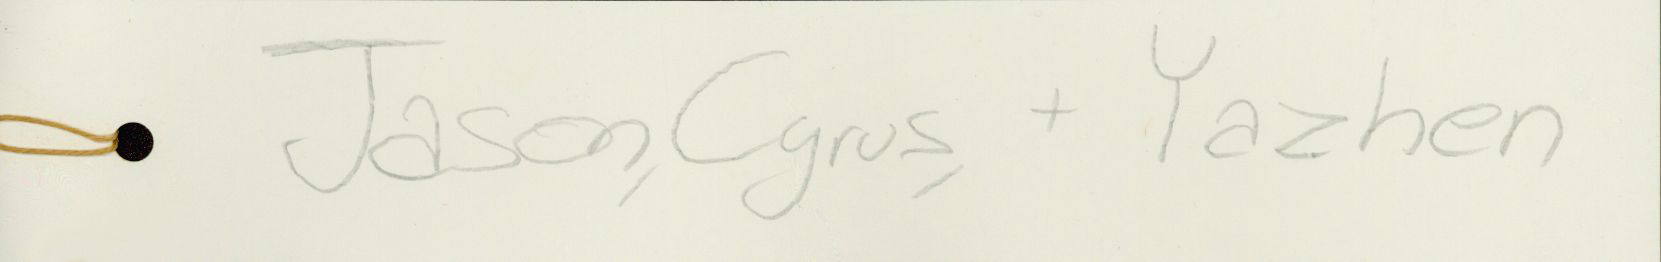 Jason, Cyrus, + Yazhen